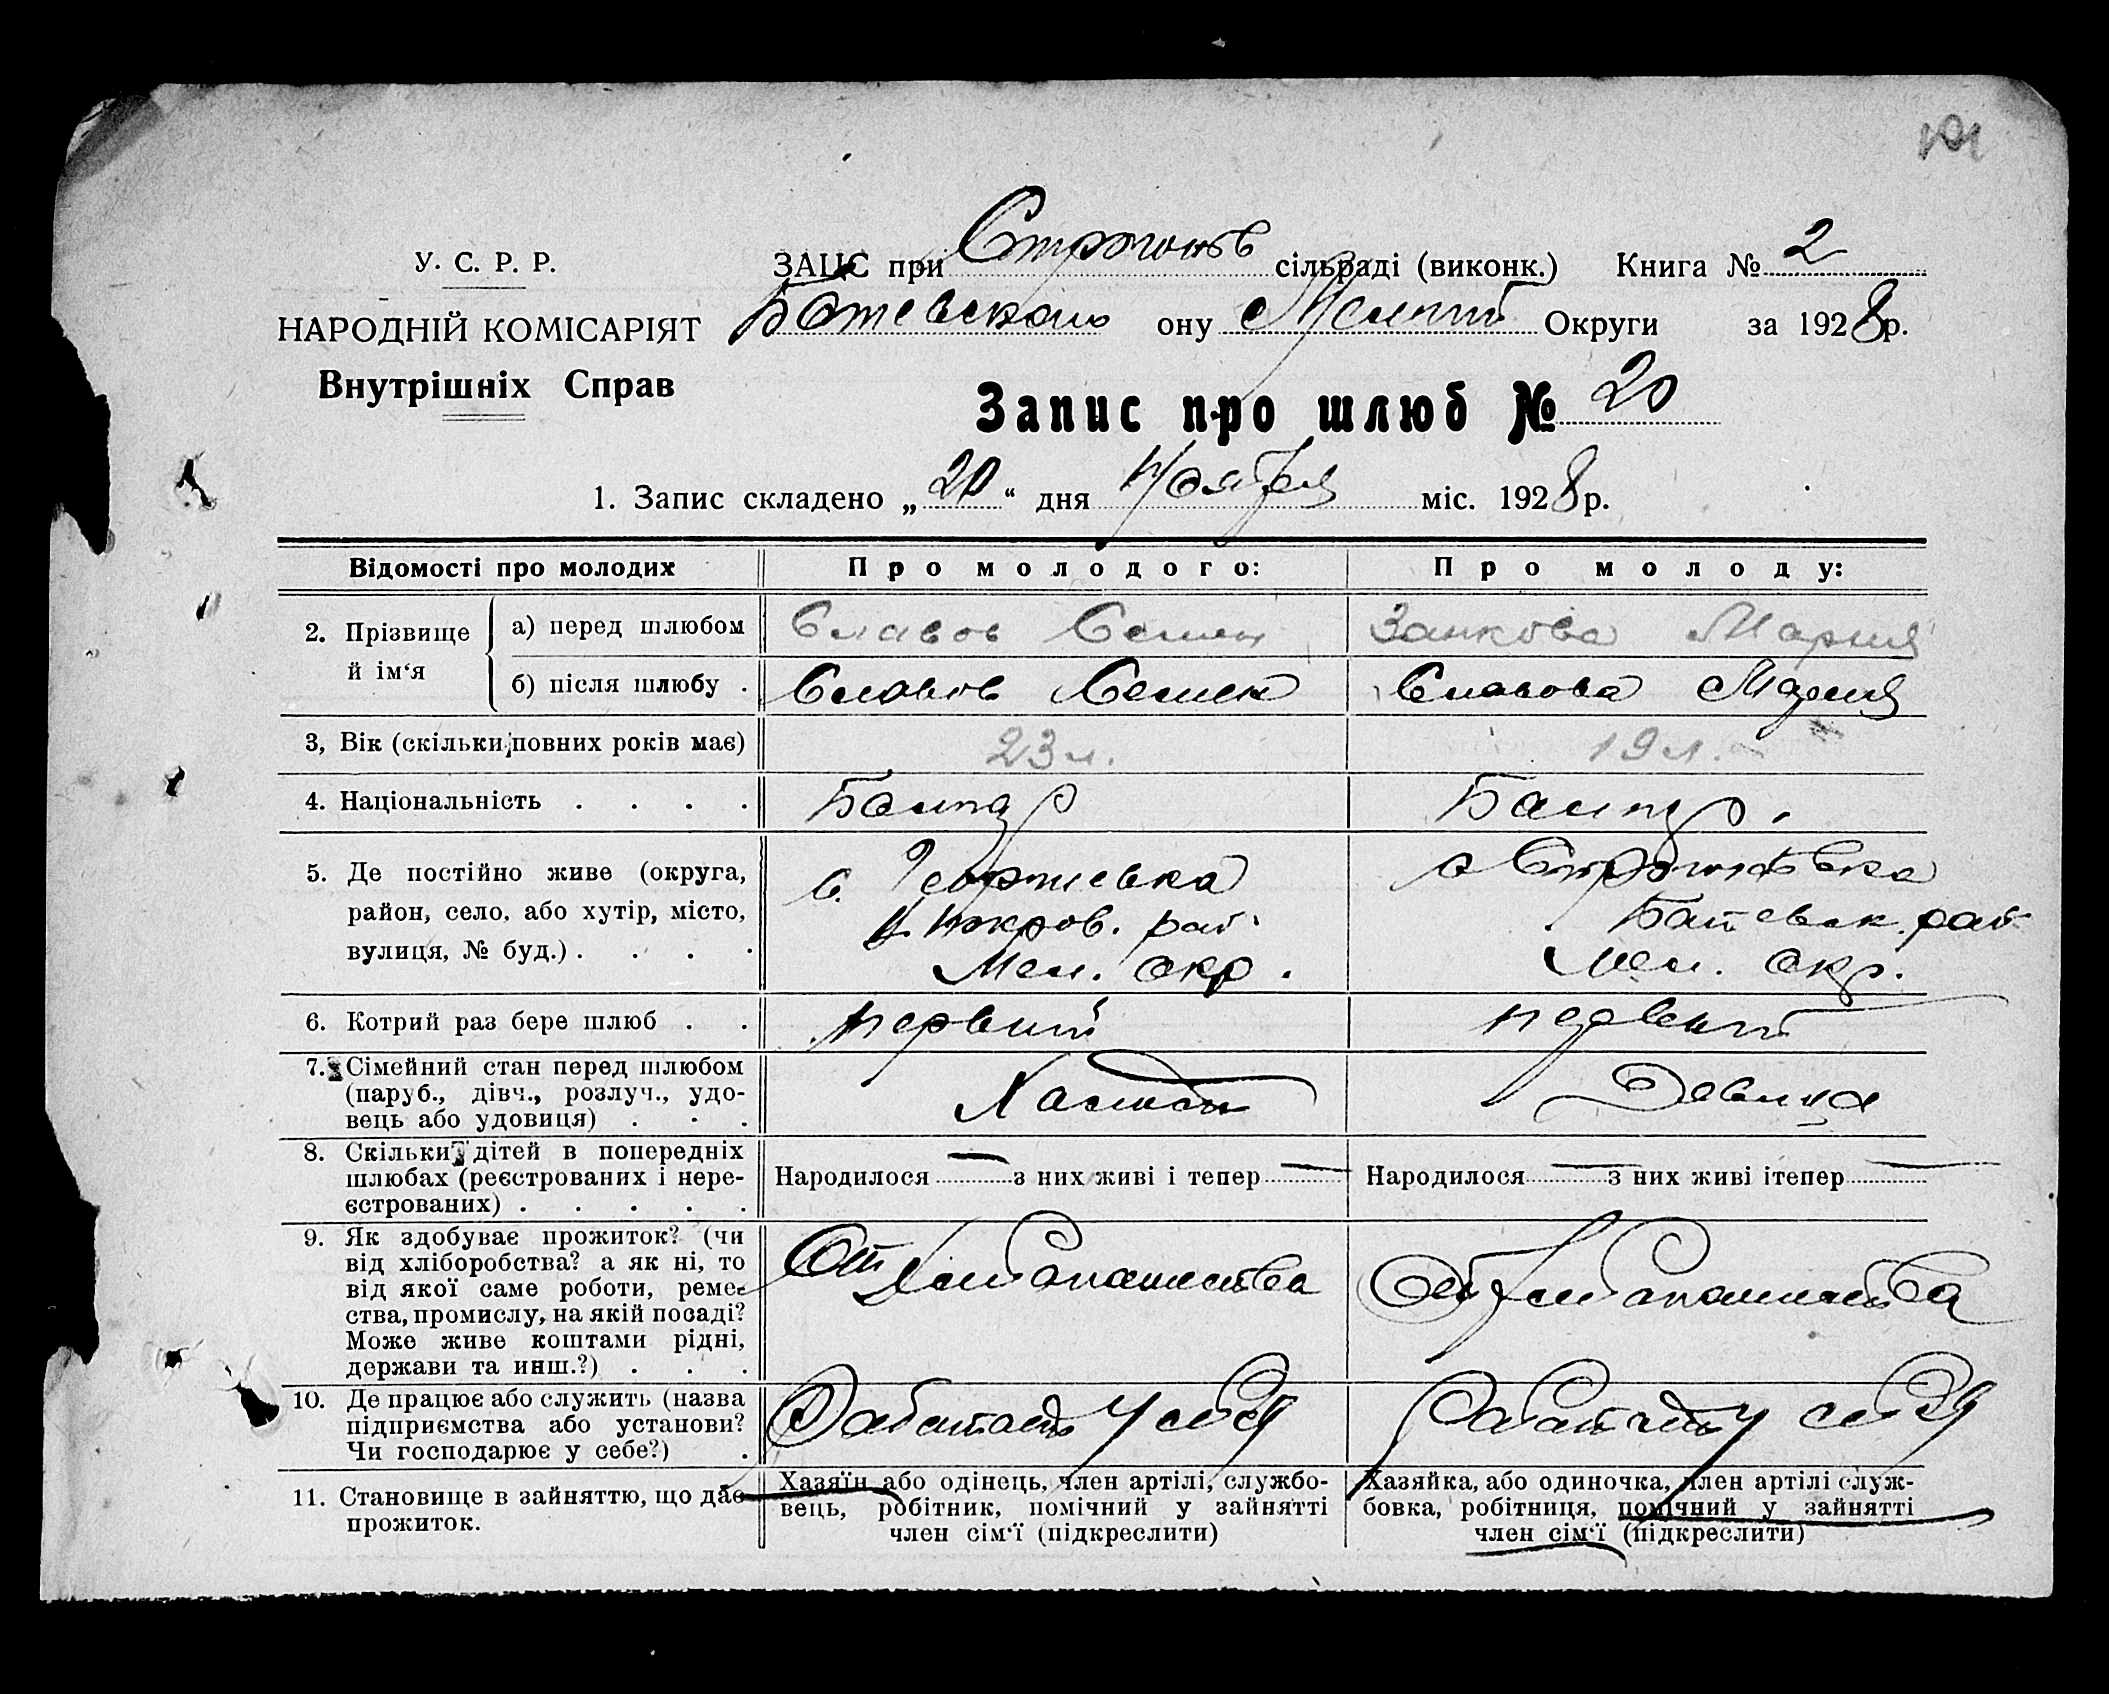 101
У. С. Р. Р.
НАРОДНІЙ КОМІСАРІЯТ
Внутрішніх Справ
ЗАЦС при Строгонів сільраді (виконк.) Книга № 2
Ботевского ону Меліт Округи за 1928 р.
Запис про шлюб № 20
1. Запис складено „20“ дня Ноября міс. 1928 р.
Відомості про молодих Про молодого: Про молоду:
2. Прізвище й ім‘я
а) перед шлюбом Славов Семен Занкова Мария
б) після шлюбу . Славов Семен Славова Мария
3, Вік (скільки повних років має) 23 л. 19 л.
4. Національність . . . . Болгар Балгар.
5. Де постійно живе (округа,
район, село, або хутір, місто,
вулиця, № буд.) . . . .
с. Георгиевка
Н. Покров. рай.
Мел. окр.
с Строгоновка
Батевск. рай
Мел. окр.
6. Котрий раз бере шлюб . . первий первий
7. Сімейний стан перед шлюбом
(паруб., дівч., розлуч., удо-
вець або удовиця) . . .
Халост Девица
8. Скільки дітей в попередніх
шлюбах (реєстрованих і нере-
єстрованих) . . . . .
Народилося — з них живі і тепер — Народилося — з них живі ітепер —
9. Як здобуває прожиток? (чи
від хліборобства? а як ні, то
від якої саме роботи, реме-
ства, промислу, на якій посаді?
Може живе коштами рідні,
держави та инш.?) . . .
От
10. Де працює або служить (назва
підприємства або установи?
Чи господарює у себе?) .
Работает у себя Работает у себя
11. Становище в зайняттю, що дає
прожиток.
Хазяїн або одінець, член артілі, службо-
вець, робітник, помічний у зайнятті
член сім‘ї (підкреслити)
Хазяйка, або одиночка, член артілі служ-
бовка, робітниця, помічний у зайнятті
член сім‘ї (підкреслити)